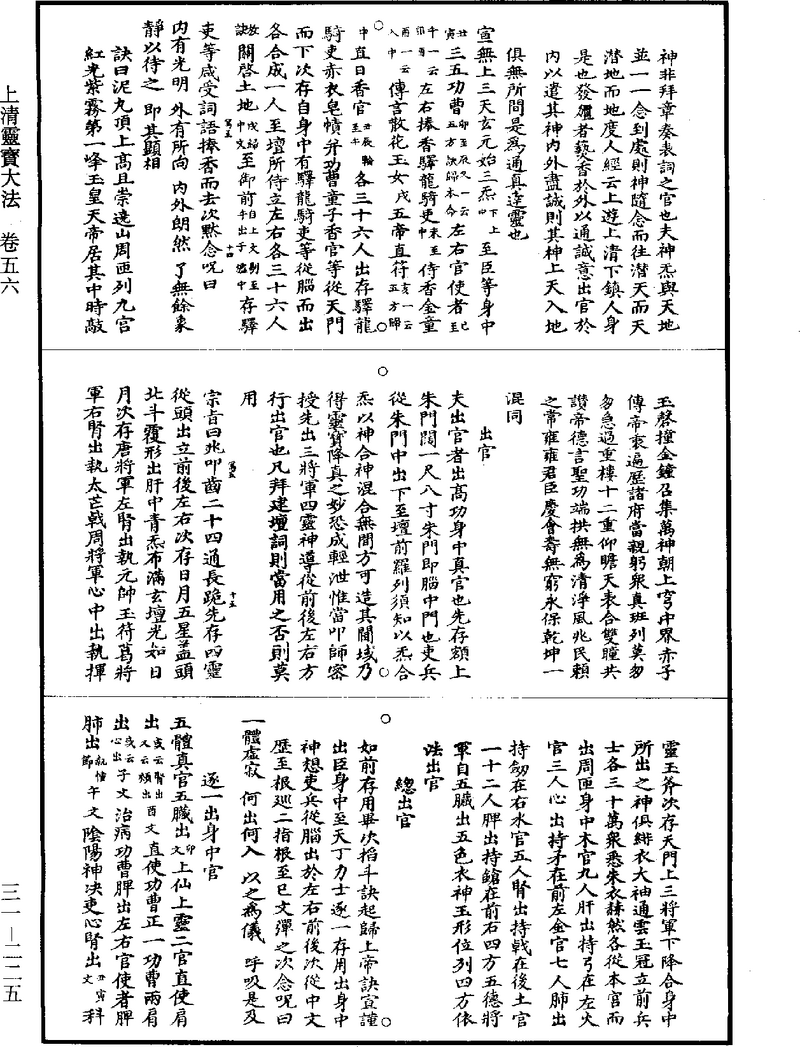 上清靈寶大法　卷五六
三一—二二五
神非拜章奏表詞之官也夫神炁與天地
並一一念到處則神隨念而往潛天而天
潛地而地度人經云上遊上清下鎮人身
是也發爐者爇香於外以通誠意出官於
內以遣其神內外盡誠則其神上天入地
俱無所問是為通真達靈也
宣無上三天玄元始三炁至臣等身中
三五功曹左右官使者
左右捧香驛龍騎吏侍香金童
傳言散花玉女五帝直符
直日香官各三十六人出存驛龍
騎吏赤衣皂幘弁功曹童子香官等從天門
而下次存自身中有驛龍騎吏等從腦而出
各合成一人至壇所侍立左右各三十六人
關啓土地至御前存驛
吏等咸受詞語捧香而去次默念呪曰
內有光明　外有所向　內外朗然　了無餘象
靜以待之　即其顯相
訣曰泥丸頂上高且崇遶山周匝列九宮
紅光紫霧第一峰玉皇天帝居其中時敲
玉磬撞金鐘召集萬神朝上穹中界赤子
傳帝衷遍歷諸府當親躬衆真班列莫匆
匆急過重樓十二重仰瞻天表合雙瞳共
讚帝德言聖功端拱無為清淨風兆民賴
之常雍雍君臣慶會壽無窮永保乾坤一
混同
出官
夫出官者出高功身中真官也先存額上
朱門闊一尺八寸朱門即腦中門也吏兵
從朱門中出下至壇前羅列須知以炁合
炁以神合神混合無間方可造其閫域乃
得靈寶降真之妙恐成輕泄惟當叩師密
授先出三將軍四靈神導從前後左右方
行出官也凡拜建壇詞則當用之否則莫
用
宗旨曰兆叩齒二十四通長跪先存四靈
從頭出立前後左右次存日月五星蓋頭
北斗覆形出肝中青炁布滿玄壇光如日
月次存唐將軍左腎出執元帥玉符葛將
軍右腎出執太芒戟周將軍心中出執揮
靈玉斧次存天門上三將軍下降合身中
所出之神俱緋衣大袖通雲玉冠立前兵
士各三十萬衆悉朱衣赫然各從本官而
出周匝身中木官九人肝出持弓在左火
官三人心出持矛在前左金官七人肺出
持劒在右水官五人腎出持戟在後土官
一十二人脾出持鎗在前右四方五德將
軍自五臟出五色衣神王形位列四方依
法出官
總出官
如前存用畢次掐斗訣起歸上帝訣宣謹
出臣身中至天丁力士逐一存用出身中
神想吏兵從腦出於左右前後次從中文
歷至根廵二指根至巳文彈之次念呪曰
一體虛寂　何出何入　以之為儀　呼吸是及
逐一出身中官
五體真官五臟出卯文上仙上靈二官直使肩
出或云腎出又云頰出酉文直使功曹正一功曹兩肩
出或云心出子文治病功曹脾出左右官使者脾
肺出午文陰陽神決吏心腎出丑寅文科